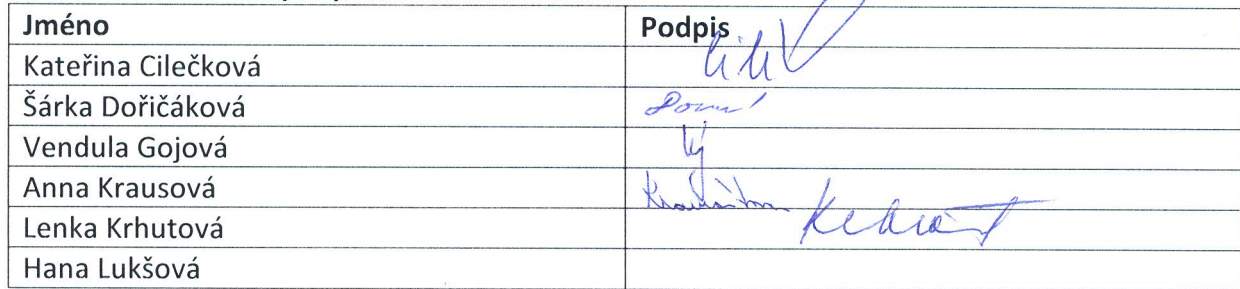 Jméno Podpis
Kateřina Cilečková
Šárka Dořičáková
Vendula Gojová
Anna Krausová
Lenka Krhutová
Hana Lukšová